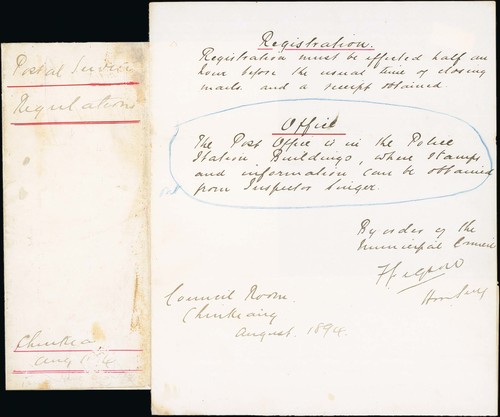 Postal Service
Regulations
Chinkea
Aug
Registration.
Registration must be effected half an
hour before the usual time of closing
mails and a receipt obtained.
Office
The Post Office is in the Police
Station Buildings, where stamps
and information can be obtained
from Inspector Singer.
By order of the
Municipal Council
Hon Secy
Council Room.
Chinkeang
August. 1894.